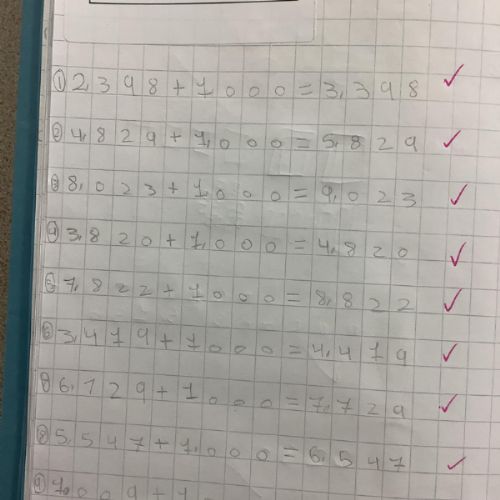 ① 2,398+1000=3,398
② 4,829+1,000=5,829
③ 8,023+1,000=9,023
④ 3,820+1,000=4,820
⑤ 7,822+1000=8,822
⑥ 3,419+1000=4,419
⑦ 6,729+1000=7,729
⑧ 5,547+1,000=6,547